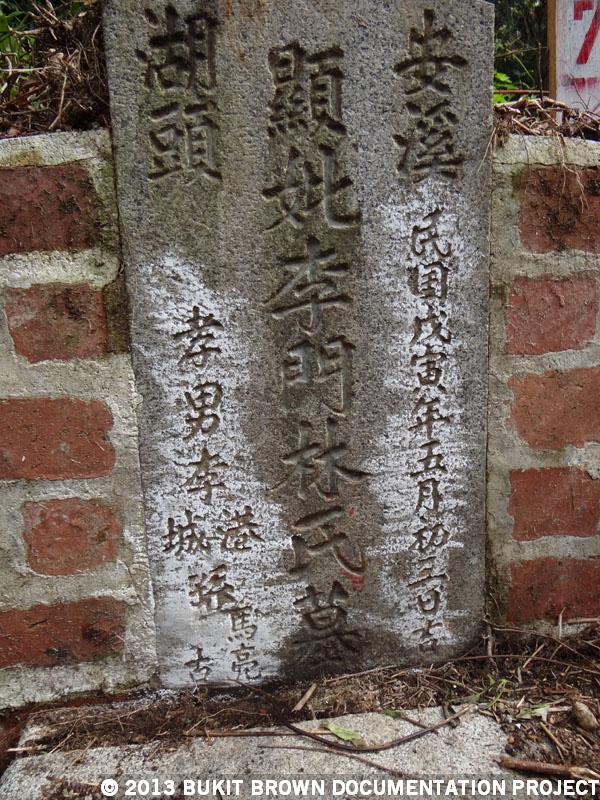 安溪
民国戊寅年五月初三日吉
顯妣李門林氏墓
湖頭
孝男李
港
城
孫
馬亮
7
© 2013 BUKIT BROWN DOCUMENTATION PROJECT